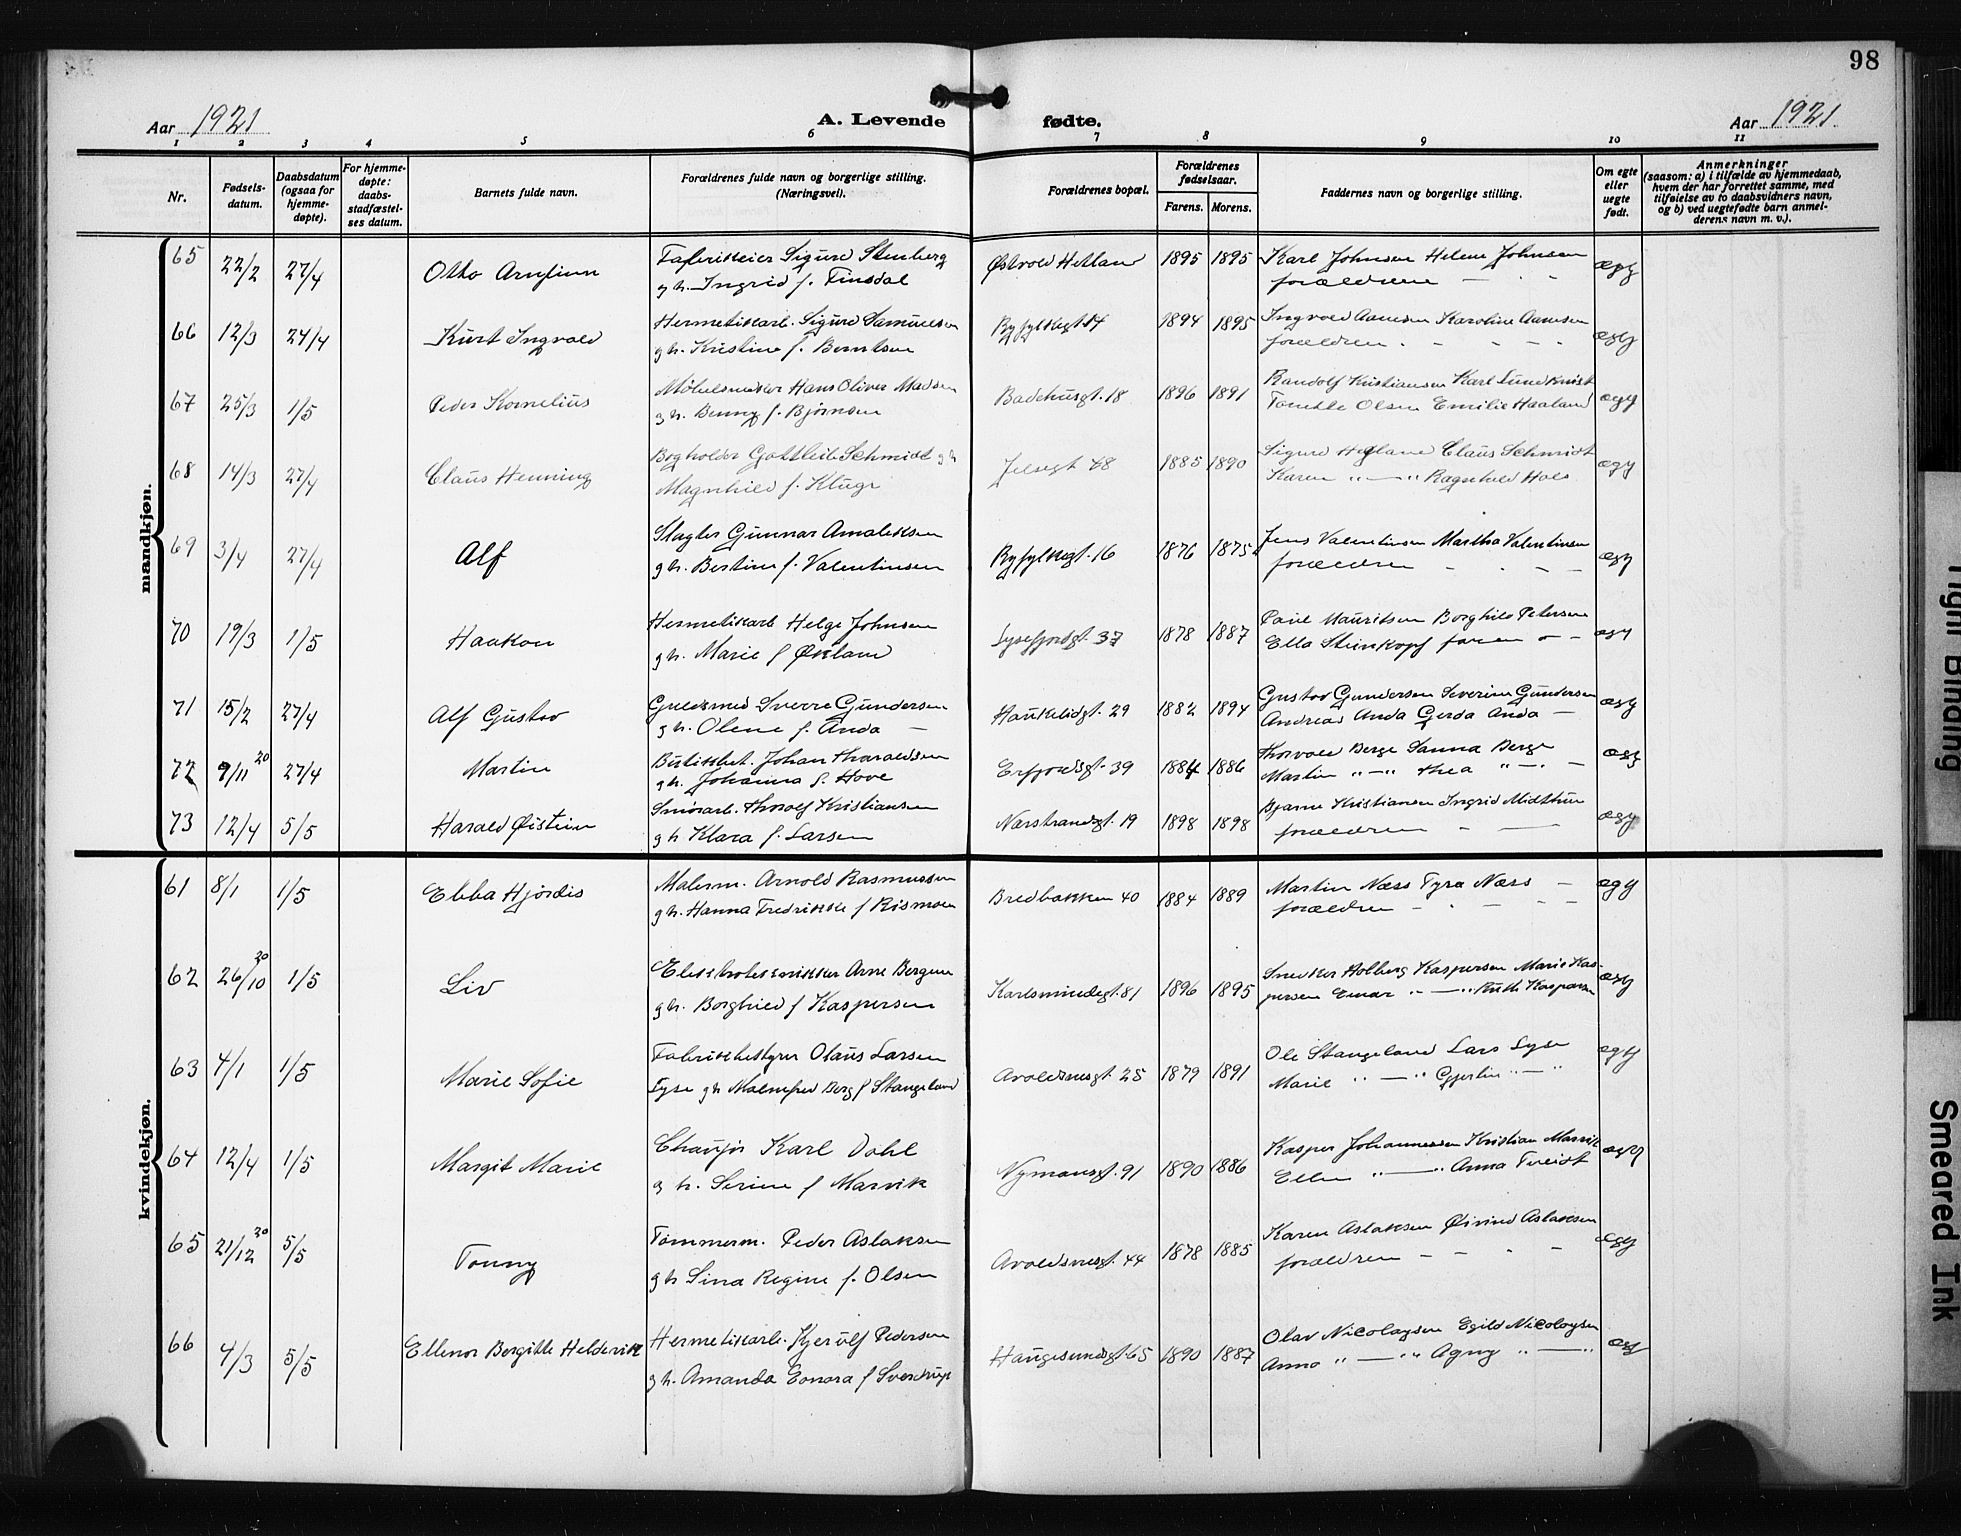 98
Aar 1921
A. Levende fødte.
Aar 1921.
1 2 3 4 5 6 7 8 9 10 11
Nr.
Fødsels-
datum.
Daabsdatum
(ogsaa for
hjemme-
døpte).
For hjemme-
døpte:
daabs-
stadfæstel-
ses datum.
Barnets fulde navn.
Forældrenes fulde navn og borgerlige stilling.
(Næringsvei).
Forældrenes bopæl.
Forældrenes
fødselsaar.
Farens. Morens.
Faddernes navn og borgerlige stilling.
Om egte
eller
uegte
født.
Anmerkninger
(saasom: a) i tilfælde av hjemmedaab,
hvem der har forrettet samme, med
tilføielse av to daabsvidners navn,
og b) ved uegtefødte barn anmel-
derens navn m. v.).
mandkjøn.
65 22/2 27/4 Otto Arnfinn
Fabrikeier Sigurd Stenberg
g h. Ingrid f. Tinsdal
Østvold Hetland 1895 1895
Karl Johnsen Helene Johnsen
forældrene — " "
ægg
66 12/3 24/4 Kurt Ingvald
Hermetikarb. Sigurd Samuelsen
g h. Kristine f. Berntsen
Ryfylkegt 14 1894 1895
Ingvald Aamdsen Karoline Aamdsen
forældren - - - -
ægg
67 25/3 1/5 Peder Kornelius
Møbelsnekker Hans Oliver Madsen
g h. Benny f. Bjørnsen
Badehusgt. 18 1896 1891
Randolf Kristiansen Karl Lundkvist
Tomette Olsen Emilie Haaland
ægg
68 14/3 27/4 Claus Henning
Bogholder Gottleib Schmidt g h
Magnhild f. Kluge
Jelsegt 48 1885 1890
Sigurd Hegland Claus Schmidt
Karen " — " Ragnhild Hols
ægg
69 3/4 27/4 Alf
Slagter Gunnar Amaleksen
g h. Bertine f. Valentinsen
Ryfylkegt. 16 1876 1875
Jens Valentinsen Martha Valentinsen
forældren - - - -
ægg
70 19/3 1/5 Haakon
Hermetikarb Helge Johnsen
g h. Marie f Økland
Lysefjordgt. 37 1878 1887
Paul Mauritsen Borghild Petersen
Ella Steinkopf faren - -
ægg
71 15/2 27/4 Alf Gustav
Guldsmed Sverre Gundersen
g h. Olene f. Anda —
Haukelidgt. 29 1882 1894
Gustav Gundersen Severine Gundersen
Andreas Anda Gerda Anda —
ægg
72 9/11 20 27/4 Martin
Butikkbet. Johan Tharaldsen
g h. Johanna f. Hove
Erfjordsgt. 39 1884 1886
Thorvald Berge Sanna Berge
Martin " — " Thea " — " —
ægg
73 12/4 5/5 Harald Øistein
Smørarb. Thoralf Kristiansen
g h Klara f. Larsen
Narstrandsgt. 19 1898 1898
Bjarne Kristiansen Ingrid Midthun
forældren - —
ægg
kvindekjøn.
61 8/1 1/5 Ebba Hjørdis
Malerm. Arnold Rasmussen
g h. Hanna Fredrikke f Rismoen
Bredbakken 40 1884 1889
Martin Næss Tyra Næss —
forældren - - - - -
ægg
62 26/10 20 1/5 Liv
Arne Bergene
g h. Borghild f Kaspersen
Karlsminnegt. 81 1896 1895
Snedker Holberg Kaspersen Marie Kas-
persen Einar " — " Ruth Kaspersen
ægg
63 4/1 1/5 Marie Sofie
Fabrikbestyrer Olaus Larsen
Lyse g h Malmfred Berg f Stangeland
Avaldsnesgt. 25 1879 1891
Ole Stangeland Lars Lyse
Marie " — " Gjertin " — "
ægg
64 12/4 1/5 Margit Marie
Chaufør Karl Dahl
g h. Serine f Marvik
Nymansgt. 91 1890 1886
Kasper Johannessen Kristian Marvik
Ellen " — " Anna Tveidt
ægg
65 21/12 20 5/5 Tonny
Tømmerm. Peder Aslaksen
g h Sina Regine f. Olsen
Avaldsnesgt. 44 1878 1885
Karen Aslaksen Øivind Aslaksen
forældren - - - -
ægg
66 4/3 5/5 Ellenor Bergitte Heldevik
Hermetikarb. Kjerulf Pedersen
g h. Amanda Eonora f Sverdrup
Haugesundsgt. 65 1890 1887
Olav Nicolaysen Egild Nicolaysen
Anna " — " Agny " — "
ægg
Tight Binding
Smeared Ink